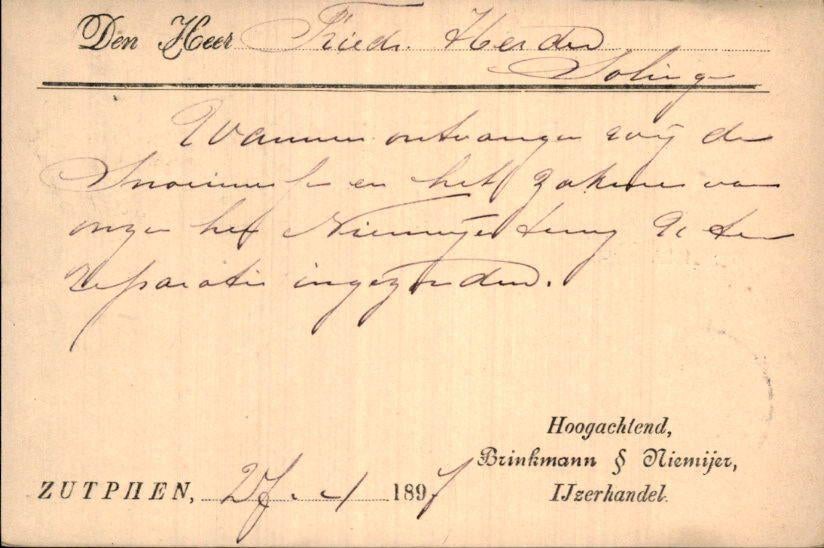 Den Heer Friedr. Herder
Soling
Wanneer ontvangen wij de
Snoeimes en het zakmes van
onzen heer Niemeijer terug die ter
reparatie ingezonden.
Hoogachtend,
Brinkmann § Niemijer,
IJzerhandel.
ZUTPHEN, 1897